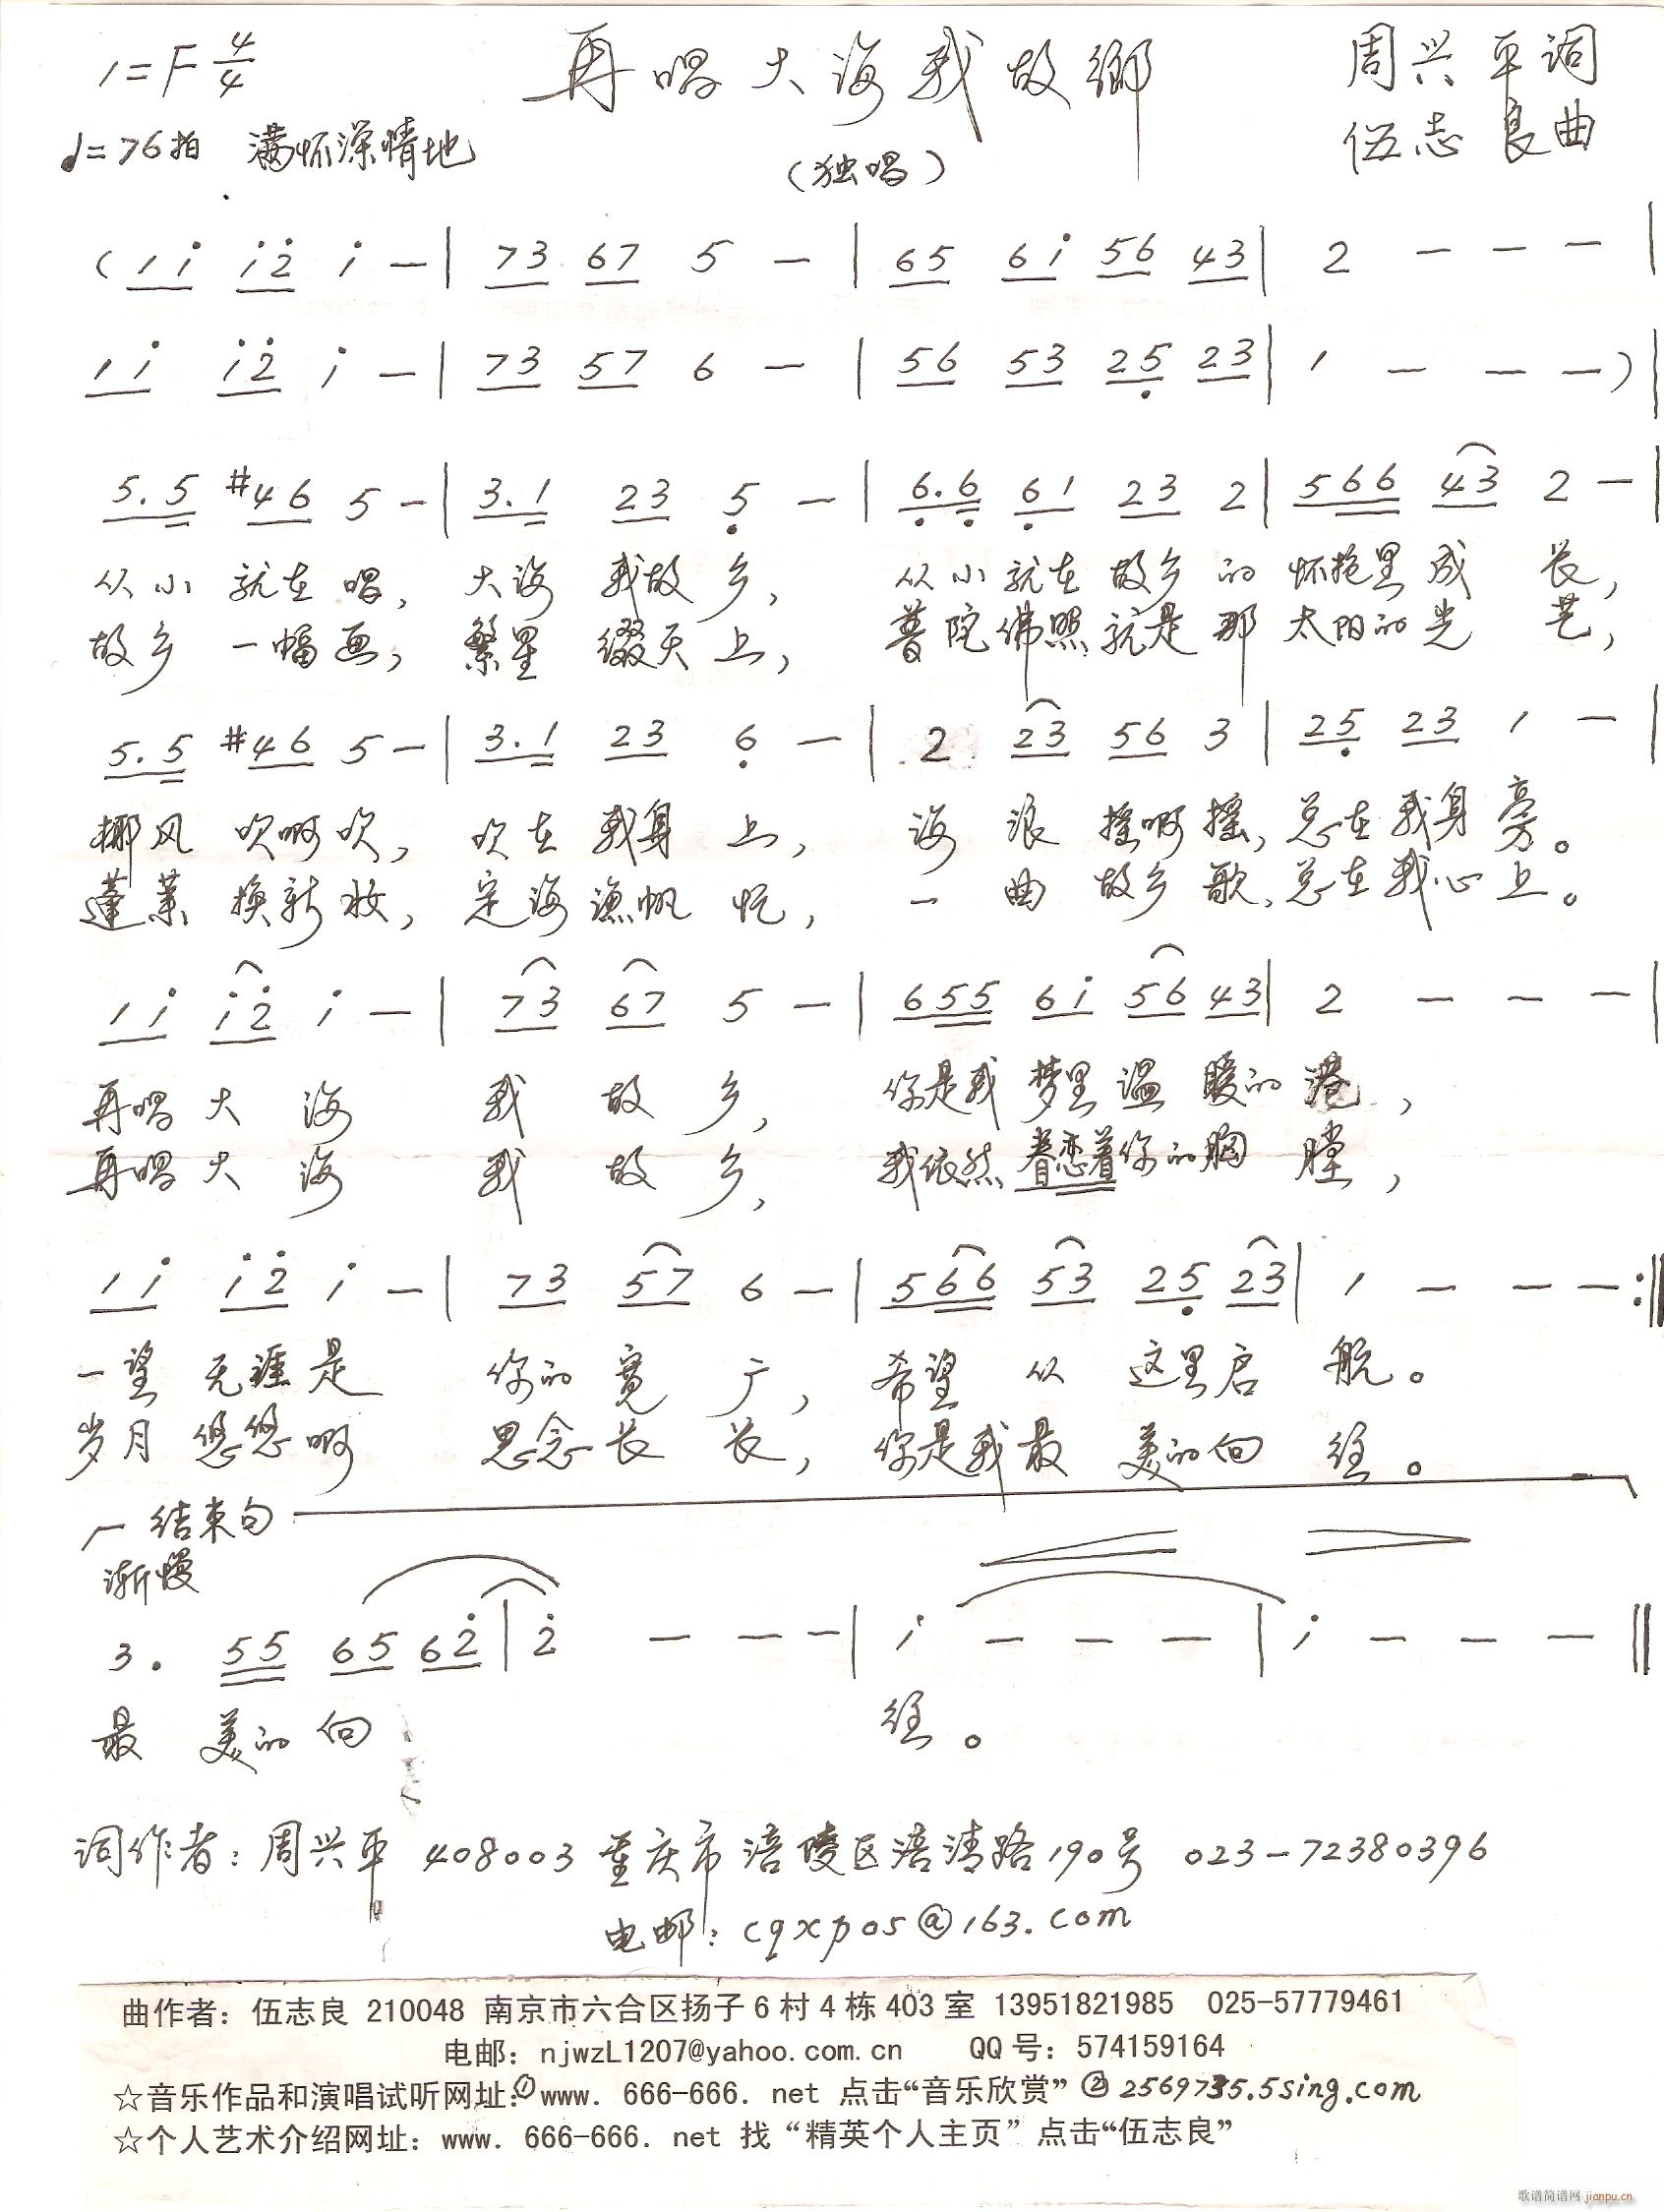 1=F 4/4 再唱大海我故鄉 周兴平词
♩=76拍 满怀深情地 (独唱) 伍志良曲
(1i̇ i̇2̇ i̇ — | 73 67 5 — | 65 6i̇ 56 43 | 2 — — — |
1i̇ i̇2̇ i̇ — | 73 57 6 — | 56 53 25̣ 23 | 1 — — —) |
5.5 #46 5 — | 3.1 23 5̣ — | 6̣.6̣ 6̣1 23 2 | 566 43 2 — |
从小就在唱, 大海我故乡, 从小就在故乡的怀抱里成长,
故乡一幅画, 繁星缀天上, 普陀佛照就是那太阳的光芒,
5.5 #46 5 — | 3.1 23 6̣ — | 2 23 56 3 | 25̣ 23 1 — |
椰风吹啊吹, 吹在我身上, 海浪摇啊摇, 总在我身旁。
蓬莱换新妆, 定海渔帆忙, 一曲故乡歌, 总在我心上。
1i̇ i̇2̇ i̇ — | 73 67 5 — | 655 6i̇ 56 43 | 2 — — — |
再唱大海我故乡, 你是我梦里温暖的港,
再唱大海我故乡, 我依然眷恋着你的胸膛,
1i̇ i̇2̇ i̇ — | 73 57 6 — | 566 53 25̣ 23 | 1 — — — :‖
一望无涯是你的宽广, 希望从这里启航。
岁月悠悠啊思念长长, 你是我最美的向往。
结束句
渐慢
3. 55 65 62̇ | 2̇ — — — | i̇ — — — | i̇ — — — ‖
最美的向往。
词作者: 周兴平 408003 重庆市涪陵区涪清路190号 023-72380396
电邮: cqxp05@163.com
曲作者: 伍志良 210048 南京市六合区扬子6村4栋403室 13951821985 025-57779461
电邮: njwzL1207@yahoo.com.cn QQ号: 574159164
☆音乐作品和演唱试听网址:①www. 666-666. net 点击“音乐欣赏” ②2569735.5sing.com
☆个人艺术介绍网址: www. 666-666. net 找“精英个人主页”点击“伍志良”
歌谱简谱网 jianpu.cn